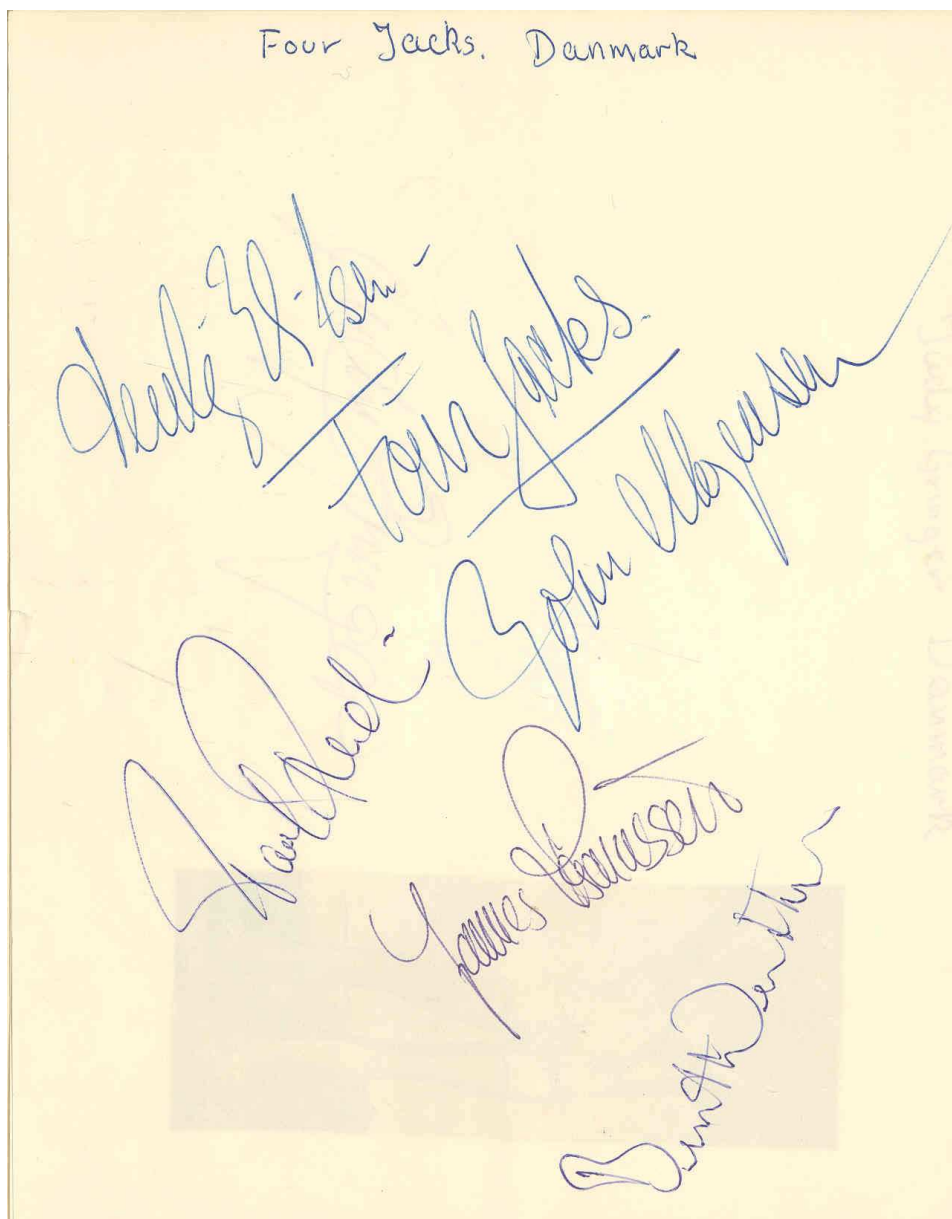 Four Jacks. Danmark
Four Jacks.
John Mogensen
Poul Rudi
James Rasmussen
Bent Werther